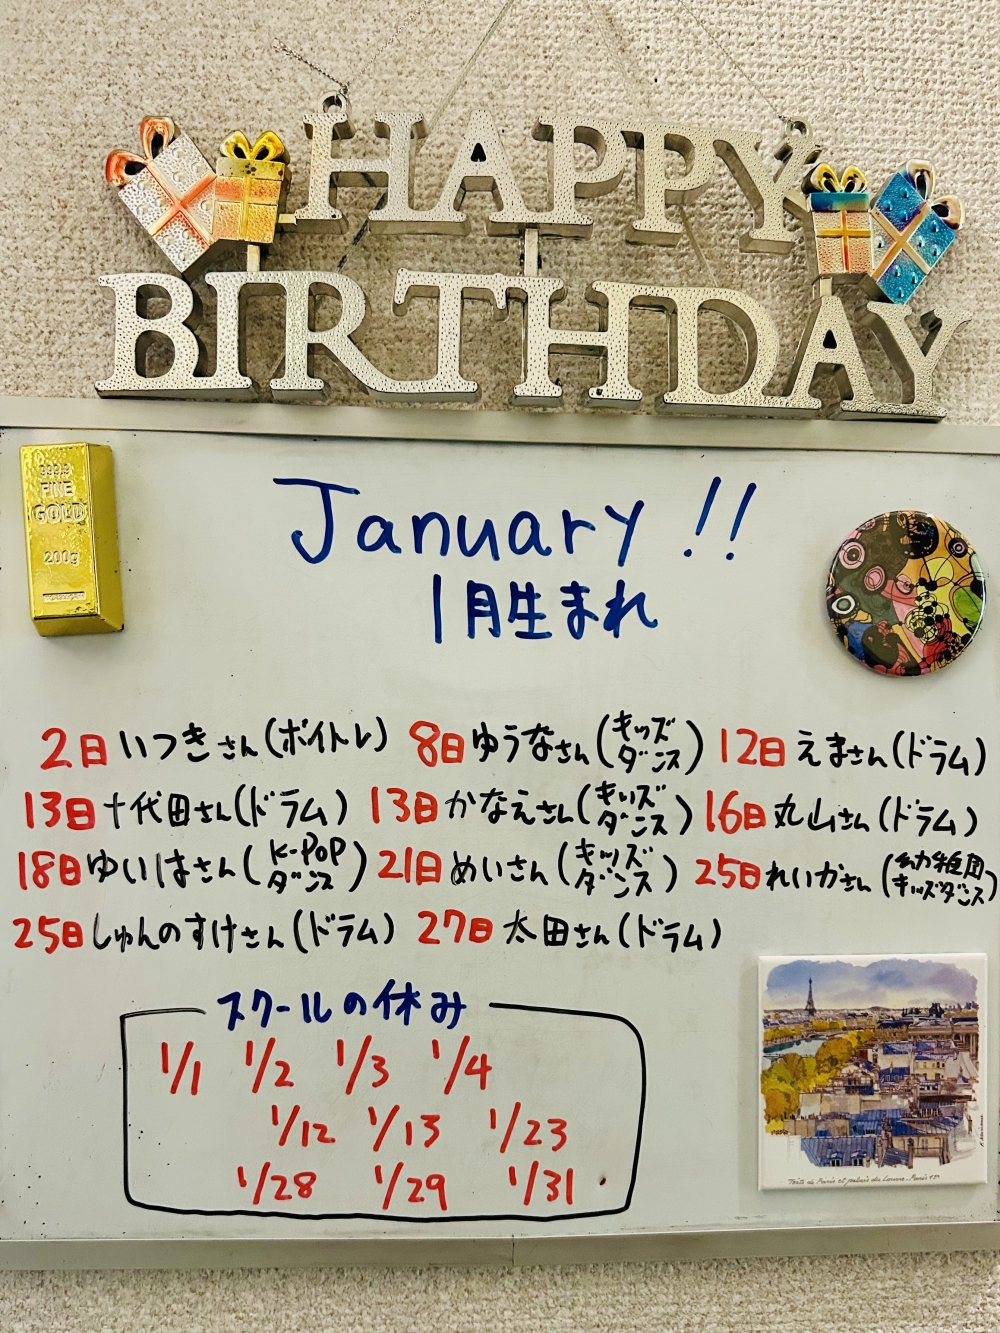 HAPPY
BIRTHDAY
999.9
FINE
GOLD
200g
January !!
1月生まれ
2日いつきさん(ボイトレ) 8日ゆうなさん(キッズダンス) 12日えまさん(ドラム)
13日十代田さん(ドラム) 13日かなえさん(キッズダンス) 16日丸山さん(ドラム)
18日ゆいはさん(K-POPダンス) 21日めいさん(キッズダンス) 25日れいかさん(幼稚園キッズダンス)
25日しゅんのすけさん(ドラム) 27日太田さん(ドラム)
スクールの休み
1/1 1/2 1/3 1/4
1/12 1/13 1/23
1/28 1/29 1/31
Toits de Paris et palais du Louvre - Paris 1er